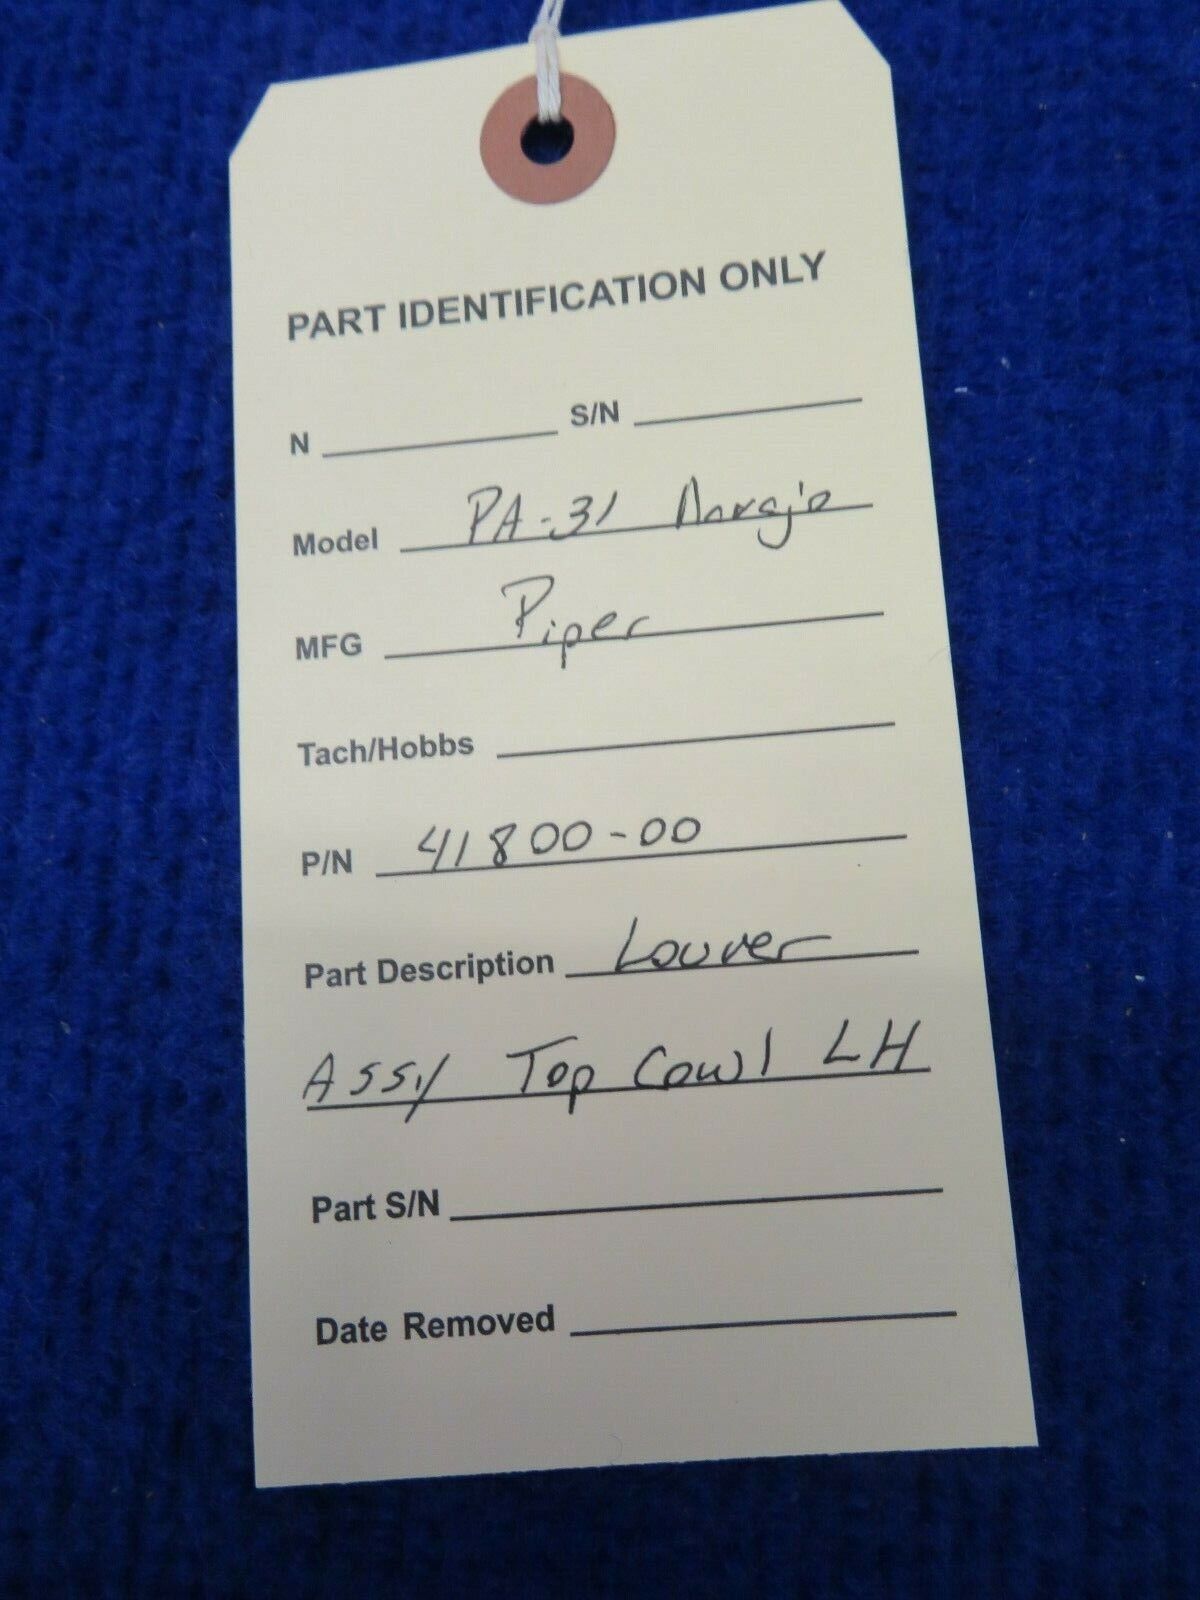 PART IDENTIFICATION ONLY
N S/N
Model PA-31 Navajo
MFG Piper
Tach/Hobbs
P/N 41800-00
Part Description Louver
Assy Top Cowl LH
Part S/N
Date Removed